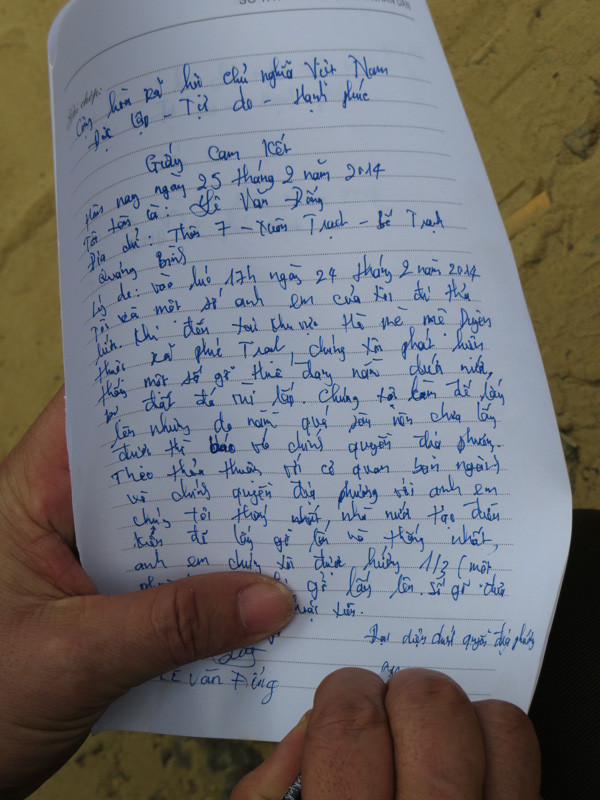 Cộng hòa xã hội chủ nghĩa Việt Nam
Độc lập - Tự do - Hạnh phúc
Giấy Cam Kết
Hôm nay ngày 25 tháng 2 năm 2014
Tôi tên là: Lê Văn
Địa chỉ: Thôn 7 - Xuân Trạch - Bố Trạch
Quảng Bình
Lý do: vào lúc 17h ngày 24 tháng 2 năm 2014
Tôi và một số anh em của tôi đi thả
lưới. Khi đến tại khu vực
thuộc xã phúc Trạch, chúng tôi phát hiện
thấy một số gỗ Huê đang nằm dưới nước,
bị đất đá vùi lấp. Chúng tôi làm để lấy
lên nhưng do nằm quá sâu nên chưa lấy
được thì báo về chính quyền địa phương.
Theo thỏa thuận với cơ quan ban ngành
và chính quyền địa phương với anh em
chúng tôi thống nhất nhà nước tạo điều
kiện để lấy gỗ lên và thống nhất,
anh em chúng tôi được hưởng 1/3 (một
gỗ lấy lên. số gỗ
Đại diện chính quyền địa phương
Lê Văn